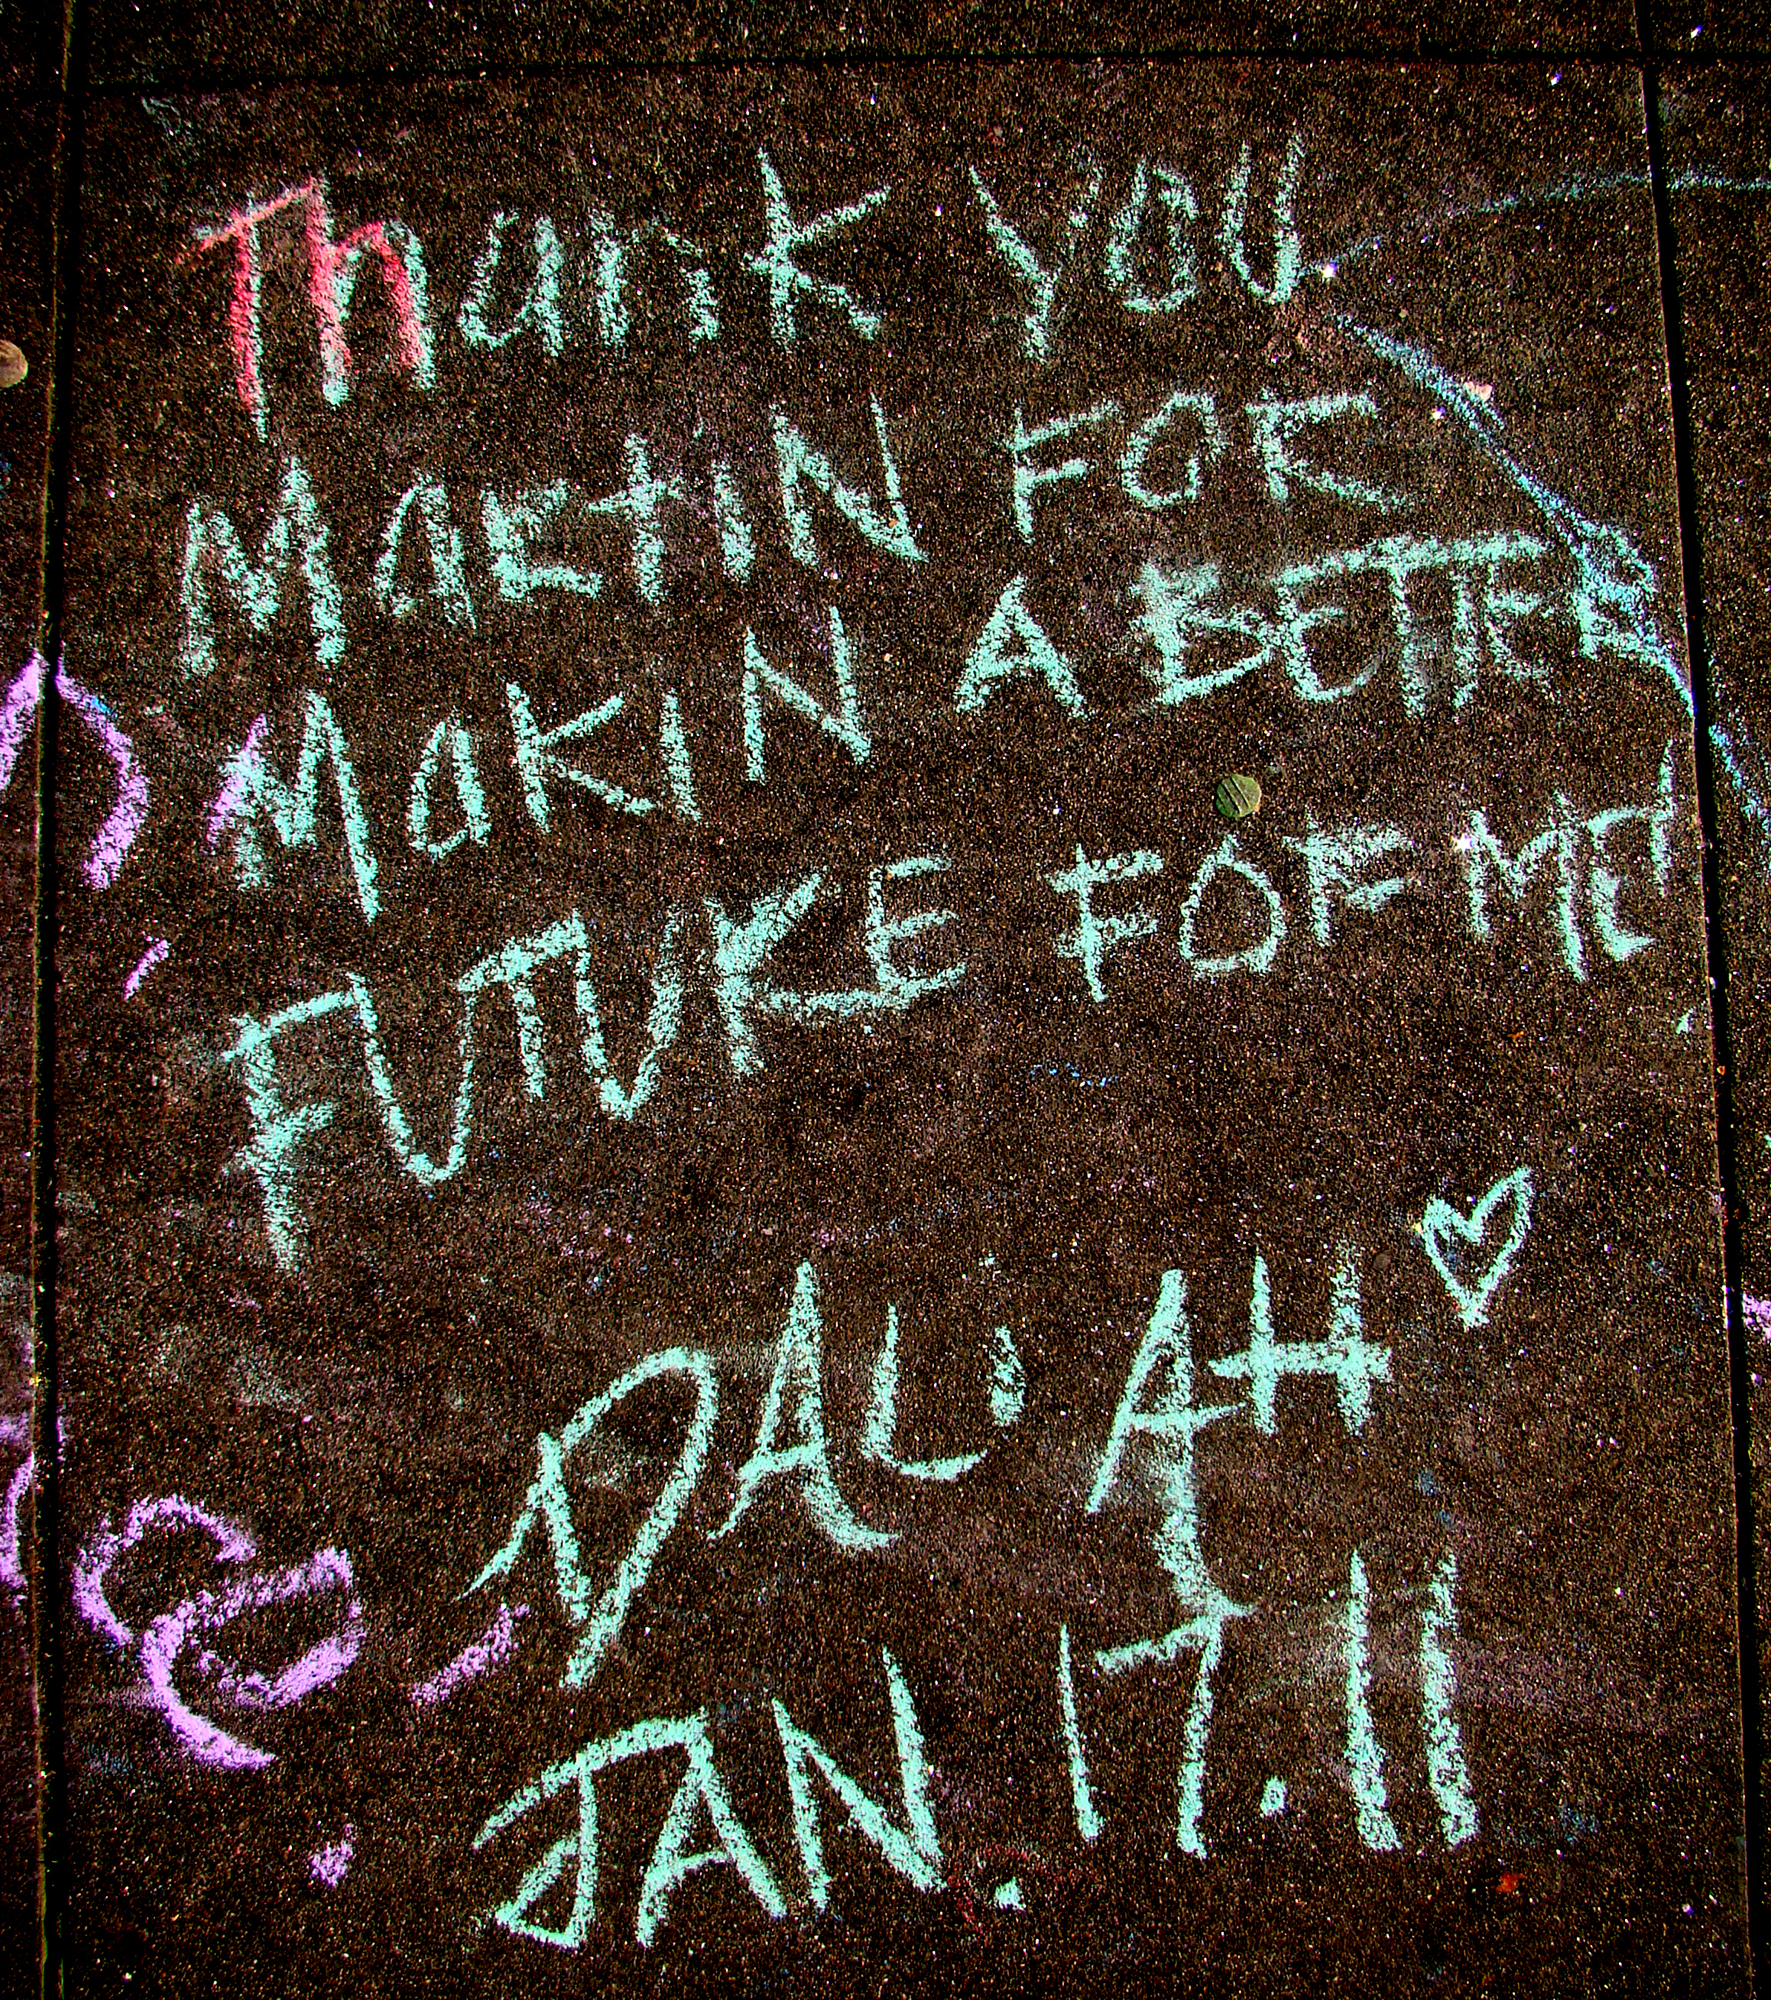 Thank YOU
MARTIN FOR
MAKIN A BETTER
FUTURE FOR ME!
DALiAH
JAN. 17.11